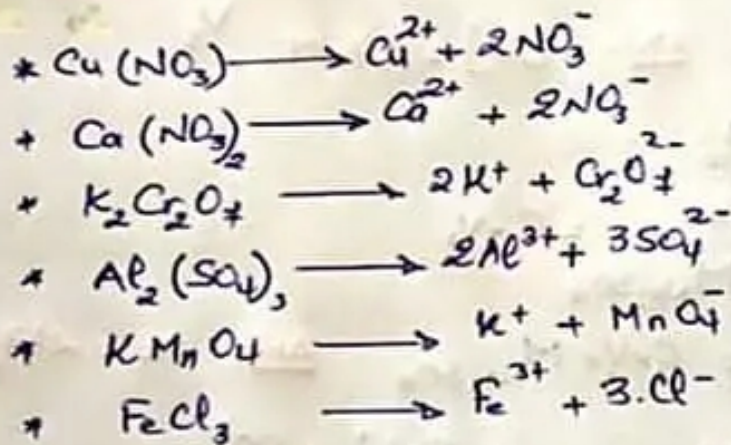 * Cu(NO₃) ⟶ Cu²⁺ + 2NO₃⁻
* Ca(NO₃)₂ ⟶ Ca²⁺ + 2NO₃⁻
* K₂Cr₂O₇ ⟶ 2K⁺ + Cr₂O₇²⁻
* Al₂(SO₄)₃ ⟶ 2Al³⁺ + 3SO₄²⁻
* KMnO₄ ⟶ K⁺ + MnO₄⁻
* FeCl₃ ⟶ Fe³⁺ + 3.Cl⁻